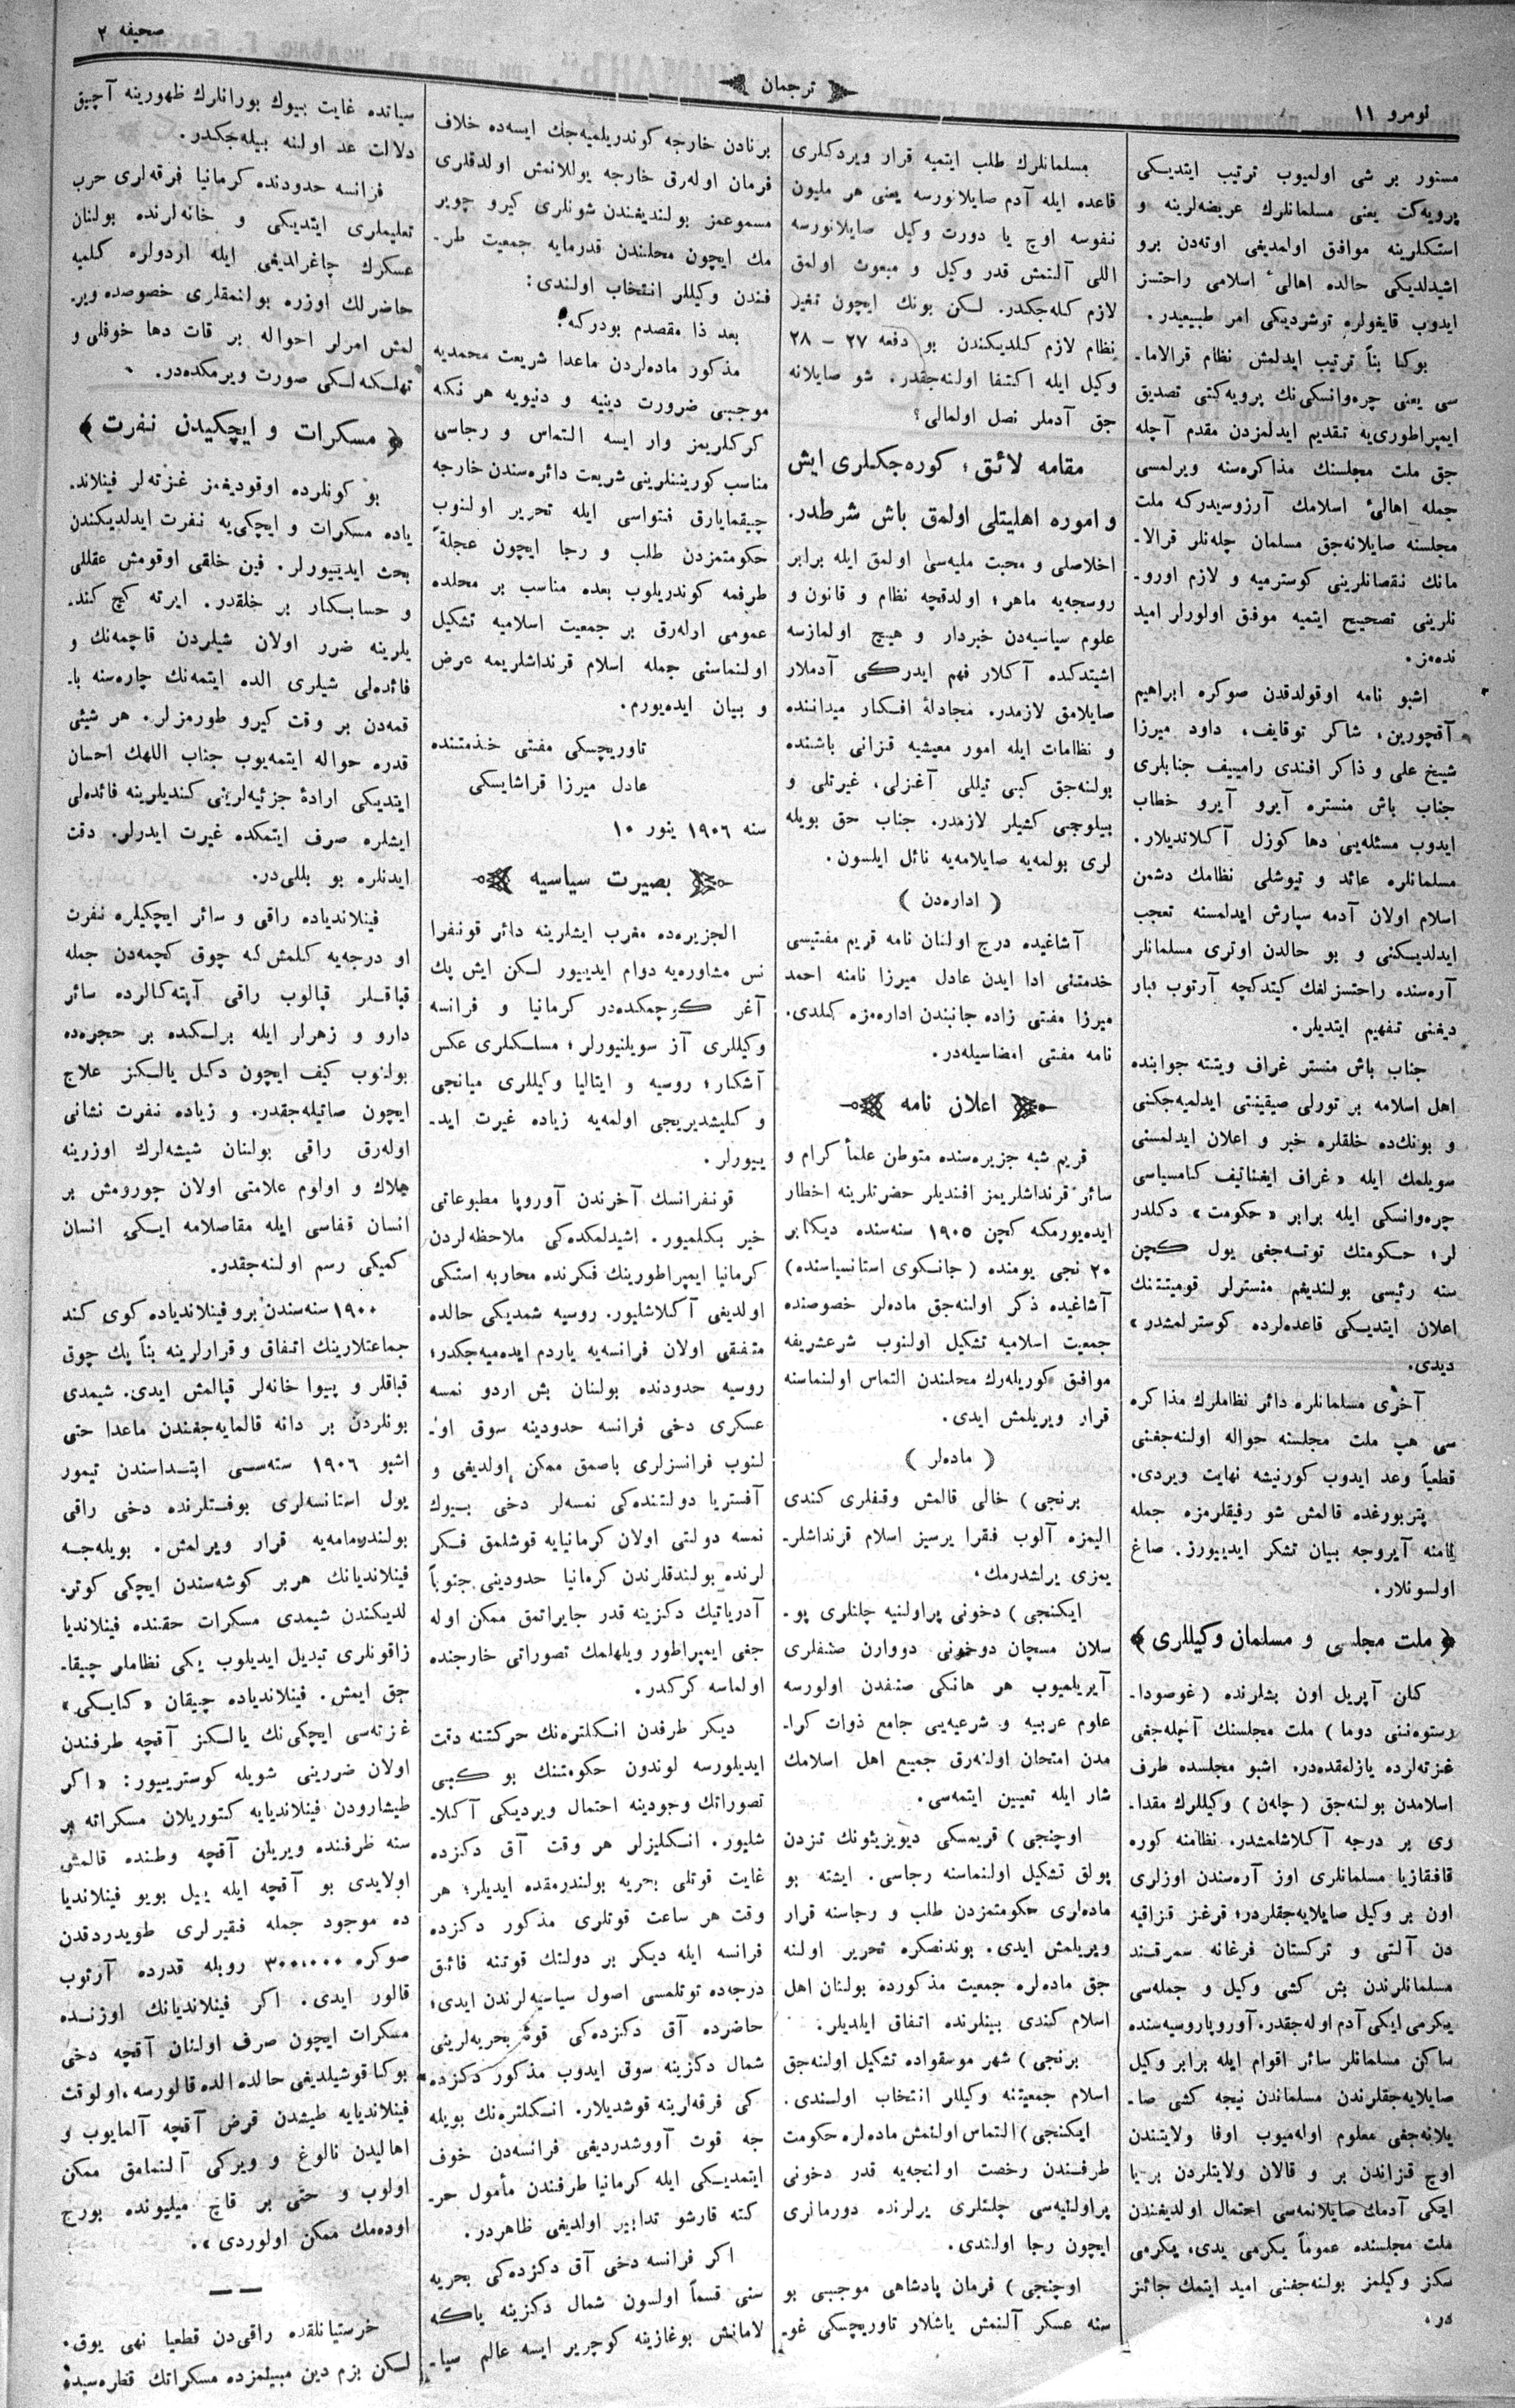 نومرو ۱۱
ترجمان
صحیفه ۲
مستور بر شی اولمیوب ترتیب ایتدیکی
پرویه‌کت یعنی مسلمانلرك عریضه‌لرینه و
استکلرینه موافق اولمدیغی اوته‌دن برو
اشیدلدیکی حالده اهالیٔ اسلامی راحتسز
ایدوب قایغولره توشردیکی امر طبیعیدر.
بوکا بناً ترتیب ایدلمش نظام قرالاما-
سی یعنی چره‌وانسکی‌نك پرویه‌کتی تصدیق
ایمپراطوری‌یه تقدیم ایدلمزدن مقدم آچله
جق ملت مجلسنك مذاکره‌سنه ویرلمسی
جمله اهالیٔ اسلامك آرزوسیدرکه ملت
مجلسنه صایلانه‌جق مسلمان چله‌نلر قرالا-
مانك نقصانلرینی کوسترمیه و لازم اورو-
نلرینی تصحیح ایتمیه موفق اولورلر امید
نده‌مز.
اشبو نامه اوقولدقدن صوکره ابراهیم
آقچورین، شاکر توقایف، داود میرزا
شیخ علی و ذاکر افندی رامییف جنابلری
جناب باش منستره آیرو آیرو خطاب
ایدوب مسئله‌یی دها کوزل آکلاندیلار.
مسلمانلره عائد و تیوشلی نظامك دشمن
اسلام اولان آدمه سپارش ایدلمسنه تعجب
ایدلدیکنی و بو حالدن اوتری مسلمانلر
آره‌سنده راحتسزلفك کیتدکچه آرتوب فبار
دیغنی تفهیم ایتدیلر.
جناب باش منستر غراف ویتته جوابنده
اهل اسلامه بر تورلی صیقینتی ایدلمیه‌جکنی
و بونك‌ده خلقلره خبر و اعلان ایدلمسنی
سویلمك ایله «غراف ایغناتیف کامسیاسی
چره‌وانسکی ایله برابر «حکومت» دکلدر
لر؛ حکومتك توتسه‌جغی یول کچن
سنه رئیسی بولندیغم منسترلر قومیتتنك
اعلان ایتدیکی قاعده‌لرده کوسترلمشدر»
دیدی.
آخری مسلمانلره دائر نظاملرك مذاکره
سی هپ ملت مجلسنه حواله اولنه‌جغنی
قطعیاً وعد ایدوب کورنیشه نهایت ویردی.
پتربورغده قالمش شو رفیقلرمزه جمله
نامنه آیروجه بیان تشکر ایدییورز. صاغ
اولسونلار.
﴿ ملت مجلسی و مسلمان وکیللری ﴾
کلن آپریل اون بشلرنده (غوصودا-
رستوه‌ننی دوما) ملت مجلسنك آچله‌جغی
غزته‌لرده یازلمقده‌در. اشبو مجلسده طرف
اسلامدن بولنه‌جق (چله‌ن) وکیللرك مقدا-
ری بر درجه آکلاشلمشدر. نظامنه کوره
قافقازیا مسلمانلری اوز آره‌سندن اوزلری
اون بر وکیل صایلایه‌جقلردر؛ قرغز قزاقیه
دن آلتی و ترکستان فرغانه سمرقند
مسلمانلرندن بش کشی وکیل و جمله‌سی
یکرمی ایکی آدم اوله‌جقدر. آوروپاروسیه‌سنده
ساکن مسلمانلر سائر اقوام ایله برابر وکیل
صایلایه‌جقلرندن مسلماندن نیچه کشی صا-
یلانه‌جغی معلوم اوله‌میوب اوفا ولایتندن
اوچ قزاندن بر و قالان ولایتلردن بر یا
ایکی آدمك صایلانمه‌سی احتمال اولدیغندن
ملت مجلسنده عموماً یکرمی یدی، یکرمی
سکز وکیلمز بولنه‌جغنی امید ایتمك جائز
در.
مسلمانلرك طلب ایتمیه قرار ویردکلری
قاعده ایله آدم صایلانورسه یعنی هر ملیون
نفوسه اوچ یا دورت وکیل صایلانورسه
اللی آلتمش قدر وکیل و مبعوث اولمق
لازم کله‌جکدر. لکن بونك ایچون تغیر
نظام لازم کلدیکندن بو دفعه ۲۷ — ۲۸
وکیل ایله اکتفا اولنه‌جقدر. شو صایلانه
جق آدملر نصل اولمالی؟
مقامه لائق؛ کوره‌جکلری ایش
و اموره اهلیتلی اولمق باش شرطدر.
اخلاصلی و محبت ملیه‌سی اولمق ایله برابر
روسجه‌یه ماهر؛ اولدقچه نظام و قانون و
علوم سیاسیه‌دن خبردار و هیچ اولمازسه
اشیتدکده آکلار فهم ایدرکی آدملار
صایلامق لازمدر. مجادلهٔ افکار میداننده
و نظامات ایله امور معیشیه قزانی باشنده
بولنه‌جق کبی تیللی آغزلی، غیرتلی و
بیلوجی کشیلر لازمدر. جناب حق بویله
لری بولمه‌یه صایلامه‌یه نائل ایلسون.
( اداره‌دن )
آشاغیده درج اولنان نامه قریم مفتیسی
خدمتنی ادا ایدن عادل میرزا نامنه احمد
میرزا مفتی زاده جانبندن اداره‌مزه کلدی.
نامه مفتی امضاسیله‌در.
اعلان نامه
قریم شبه جزیره‌سنده متوطن علمأ کرام و
سائر قرنداشلریمز افندیلر حضرتلرینه اخطار
ایده‌یورمکه کچن ۱۹۰۵ سنه‌سنده دیکابر
۲۰ نجی یومنده (جانکوی استانسیاسنده)
آشاغیده ذکر اولنه‌جق ماده‌لر خصوصنده
جمعیت اسلامیه تشکیل اولنوب شرعشریفه
موافق کوریله‌رك محلندن التماس اولنماسنه
قرار ویریلمش ایدی.
( ماده‌لر )
برنجی) خالی قالمش وقفلری کندی
الیمزه آلوب فقرا یرسیز اسلام قرنداشلر-
یمزی یرلشدرمك.
ایکنجی) دخونی پراولنیه چلنلری پو-
سلان مسچان دوخونی دووارن صنفلری
آیریلمیوب هر هانکی صنفدن اولورسه
علوم عربیه و شرعیه‌یی جامع ذوات کرا-
مدن امتحان اولنه‌رق جمیع اهل اسلامك
شار ایله تعیین ایتمه‌سی.
اوچنجی) قریمسکی دیویزیئونك تزدن
پولق تشکیل اولنماسنه رجاسی. ایشته بو
ماده‌لری حکومتمزدن طلب و رجاسنه قرار
ویریلمش ایدی. بوندنصکره تحریر اولنه
جق ماده‌لره جمعیت مذکورده بولنان اهل
اسلام کندی بینلرنده اتفاق ایلدیلر.
برنجی) شهر موسقواده تشکیل اولنه‌جق
اسلام جمعیتنه وکیللر انتخاب اولسندی.
ایکنجی) التماس اولنمش ماده‌لره حکومت
طرفندن رخصت اولنجه‌یه قدر دخونی
پراولنیه‌سی چلنلری یرلرنده دورمالری
ایچون رجا اولندی.
اوچنجی) فرمان پادشاهی موجبی بو
سنه عسکر آلنمش یاشلار تاوریچسکی غو-
برنادن خارجه کوندریلمیه‌جك ایسه‌ده خلاف
فرمان اوله‌رق خارجه یوللانمش اولدقلری
مسموعمز بولندیغندن شونلری کیرو چویر
مك ایچون محلندن قدرمایه جمعیت طر-
فندن وکیللر انتخاب اولندی:
بعد ذا مقصدم بودرکه:
مذکور ماده‌لردن ماعدا شریعت محمدیه
موجبی ضرورت دینیه و دنیویه هر نکه
کرکلریمز وار ایسه التماس و رجاسی
مناسب کورینلرینی شریعت دائره‌سندن خارجه
چیقمایارق فتواسی ایله تحریر اولنوب
حکومتمزدن طلب و رجا ایچون عجلةً
طرفمه کوندریلوب بعده مناسب بر محلده
عمومی اوله‌رق بر جمعیت اسلامیه تشکیل
اولنماسنی جمله اسلام قرنداشلریمه عرض
و بیان ایده‌یورم.
تاوریچسکی مفتی خذمتنده
عادل میرزا قراشایسکی
سنه ۱۹۰۶ ینور ۱۰
بصیرت سیاسیه
الجزیره‌ده مغرب ایشلرینه دائر قونفرا
نس مشاوره‌یه دوام ایدییور لکن ایش پك
آغر کوچمکده‌در کرمانیا و فرانسه
وکیللری آز سویلنیورلر؛ مسلکلری عکس
آشکار؛ روسیه و ایتالیا وکیللری میانجی
و کلیشدیریجی اولمه‌یه زیاده غیرت اید-
ییورلر.
قونفرانسك آخرندن آوروپا مطبوعاتی
خیر بکلمیور. اشیدلمکده‌کی ملاحظه‌لردن
کرمانیا ایمپراطورینك فکرنده محاربه استکی
اولدیغی آکلاشلیور. روسیه شمدیکی حالده
متفقی اولان فرانسه‌یه یاردم ایده‌میه‌جکدر؛
روسیه حدودنده بولنان بش اردو نمسه
عسکری دخی فرانسه حدودینه سوق او-
لنوب فرانسزلری باصمق ممکن اولدیغی و
آفستریا دولتنده‌کی نمسه‌لر دخی بیوك
نمسه دولتی اولان کرمانیایه قوشلمق فکر
لرنده بولندقلرندن کرمانیا حدودینی جنوباً
آدریاتیك دکزینه قدر جایراتمق ممکن اوله
جغی ایمپراطور ویلهلمك تصوراتی خارجنده
اولماسه کرکدر.
دیکر طرفدن انکلتره‌نك حرکتنه دقت
ایدیلورسه لوندون حکومتنك بو کبی
تصوراتك وجودینه احتمال ویردیکی آکلا-
شلیور. انکلیزلر هر وقت آق دکزده
غایت قوتلی بحریه بولندرمقده ایدیلر؛ هر
وقت هر ساعت قوتلری مذکور دکزده
فرانسه ایله دیکر بر دولتك قوتنه فائق
درجه‌ده توتلمسی اصول سیاسیه‌لرندن ایدی؛
حاضرده آق دکزده‌کی قوتلو بحریه‌لرینی
شمال دکزینه سوق ایدوب مذکور دکزده
کی فرقه‌لرینه قوشدیلار. انکلتره‌نك بویله
جه قوت آووشدردیغی فرانسه‌دن خوف
ایتمدیکی ایله کرمانیا طرفندن مأمول حر-
کته قارشو تدابیر اولدیغی ظاهردر.
اکر فرانسه دخی آق دکزده‌کی بحریه
سنی قسماً اولسون شمال دکزینه یاکه
لامانش بوغازینه کوچریر ایسه عالم سیا-
سیانده غایت بیوك بورانلرك ظهورینه آچیق
دلالت عد اولنه بیله‌جکدر.
فرانسه حدودنده کرمانیا فرقه‌لری حرب
تعلیملری ایتدیکی و خانه‌لرنده بولنان
عسکرك چاغرلدیغی ایله اردولره کلمیه
حاضرلك اوزره بولنمقلری خصوصده ویر-
لمش امرلر احواله بر قات دها خوفلی و
تهلکه‌لکی صورت ویرمکده‌در.
﴿ مسکرات و ایچکیدن نفرت ﴾
بو کونلرده اوقودیغمز غزته‌لر فینلاند-
یاده مسکرات و ایچکی‌یه نفرت ایدلدیکندن
بحث ایدییورلر. فین خلقی اوقومش عقللی
و حسابکار بر خلقدر. ایرته کچ کند-
یلرینه ضرر اولان شیلردن قاچمه‌نك و
فائده‌لی شیلری الده ایتمه‌نك چاره‌سنه با-
قمه‌دن بر وقت کیرو طورمزلر. هر شیئی
قدره حواله ایتمه‌یوب جناب اللهك احسان
ایتدیکی ارادهٔ جزئیه‌لرینی کندیلرینه فائده‌لی
ایشلره صرف ایتمکده غیرت ایدرلر. دقت
ایدنلره بو بللی‌در.
فینلاندیاده راقی و سائر ایچکیلره نفرت
او درجه‌یه کلمش که چوق کچمه‌دن جمله
قباقلر قپالوب راقی آپته‌کالرده سائر
دارو و زهرلر ایله برلکده بر حجره‌ده
بولنوب کیف ایچون دکل یالکز علاج
ایچون صاتیله‌جقدر. و زیاده نفرت نشانی
اوله‌رق راقی بولنان شیشه‌لرك اوزرینه
هلاك و اولوم علامتی اولان چورومش بر
انسان قفاسی ایله مقاصلامه ایکی انسان
کمیکی رسم اولنه‌جقدر.
۱۹۰۰ سنه‌سندن برو فینلاندیاده کوی کند
جماعتلارینك اتفاق و قرارلرینه بناً پك چوق
قباقلر و پیوا خانه‌لر قپالمش ایدی. شیمدی
بونلردن بر دانه قالمایه‌جغندن ماعدا حتی
اشبو ۱۹۰۶ سنه‌سی ابتداسندن تیمور
یول استانسه‌لری بوفتلرنده دخی راقی
بولندرمامه‌یه قرار ویرلمش. بویله‌جه
فینلاندیانك هربر کوشه‌سندن ایچکی کوتر-
لدیکندن شیمدی مسکرات حقنده فینلاندیا
زاقونلری تبدیل ایدیلوب یکی نظاملر چیقا-
جق ایمش. فینلاندیاده چیقان «کایسکی»
غزته‌سی ایچکی‌نك یالکز آقچه طرفندن
اولان ضررینی شویله کوستریییور: «اکر
طیشارودن فینلاندیایه کتوریلان مسکراته بر
سنه ظرفنده ویریلن آقچه وطنده قالمش
اولایدی بو آقچه ایله ییل بویو فینلاندیا
ده موجود جمله فقیرلری طویدردقدن
صوکره ۳۰۰،۰۰۰ روبله قدرده آرتوب
قالور ایدی. اکر فینلاندیانك اوزنده
مسکرات ایچون صرف اولنان آقچه دخی
بوکا قوشیلدیغی حالده الده قالورسه، اولوقت
فینلاندیایه طیشدن قرض آقچه آلمایوب و
اهالیدن نالوغ و ویرکی آلنمامق ممکن
اولوب و حتی بر قاچ میلیونده بورج
اوده‌مك ممکن اولوردی».
— —
خرستیانلقده راقی‌دن قطعیا نهی یوق.
لکن بزم دین مبینمزده مسکراتك قطره‌سیده